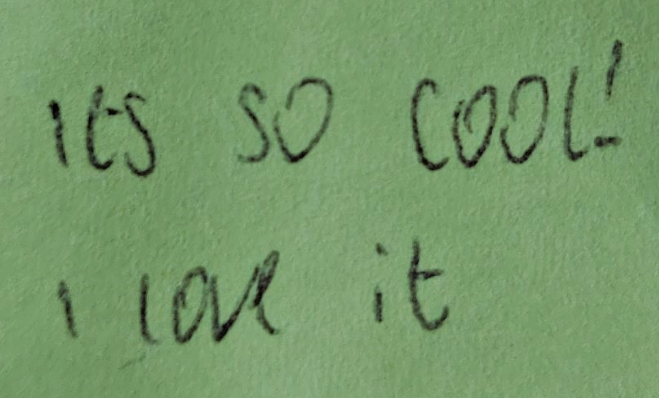 its so cool!
I love it